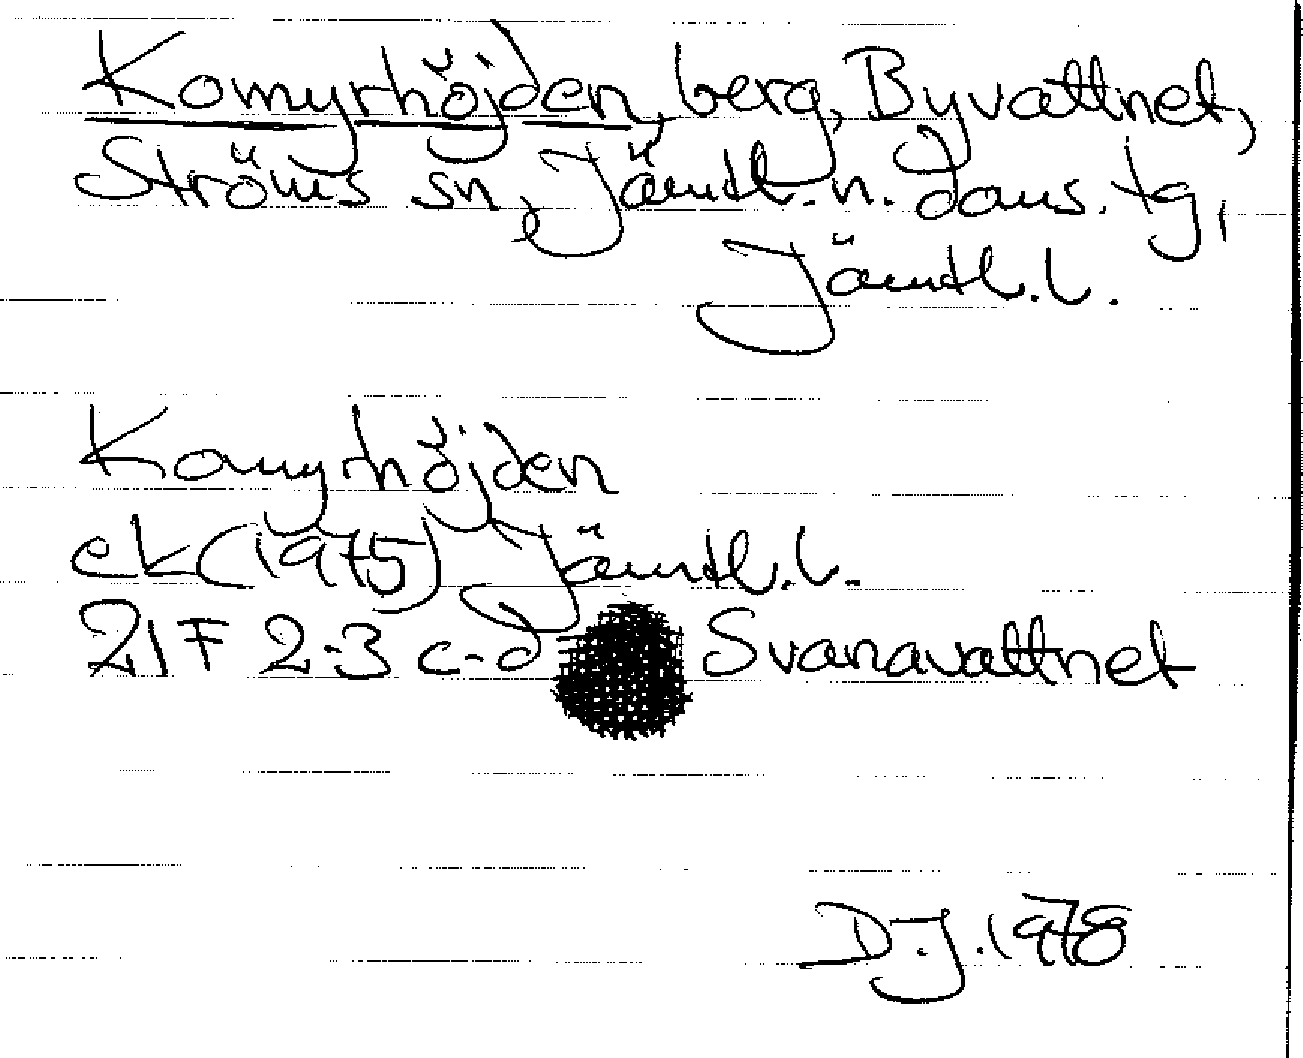 Komyrhöjden, berg, Byvattnet,
Ströms sn, Jämtl. n. doms. tg,
Jämtl. l.
Komyrhöjden
ek (1975) Jämtl. l.
21F 2-3 c-d Svanavattnet
D.J. 1978